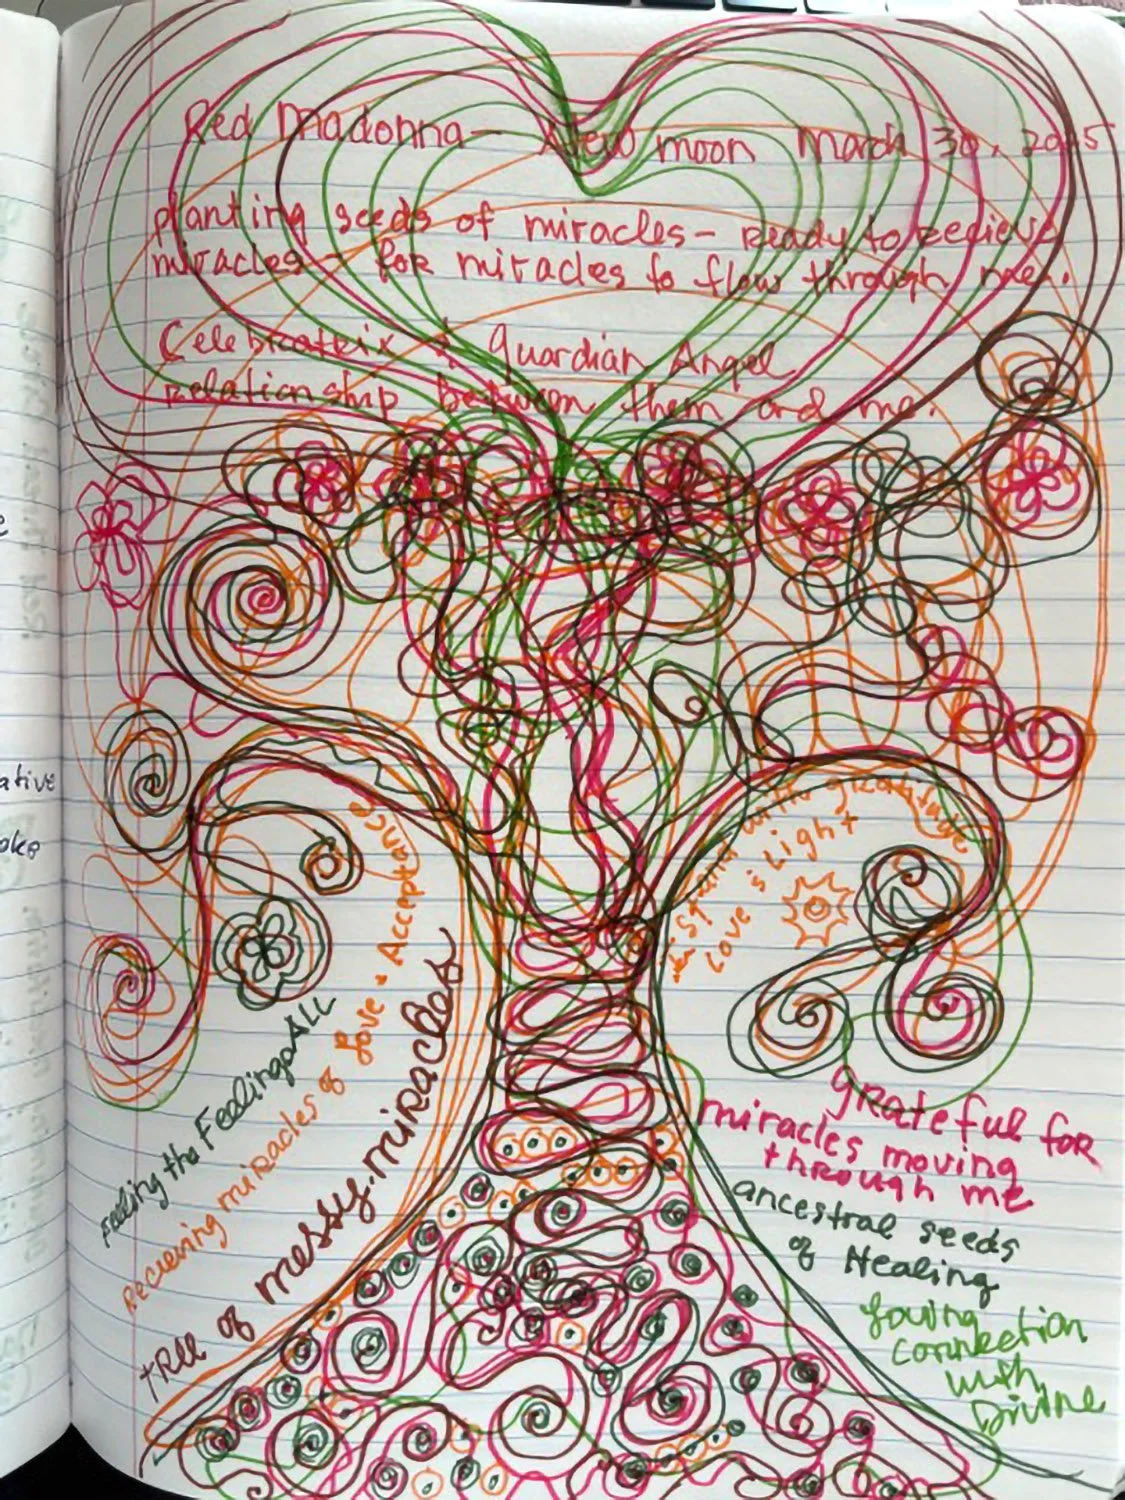 Red Madonna — New moon March 30, 2025
planting seeds of miracles – Ready to Recieve
miracles – for miracles to flow through me.
Celebratrix & Guardian Angel
Relationship between them and me.
with gratitude
Love is Light
Feeling the Feelings ALL
Recieving miracles of Love & Acceptance
tree of messy miracles
grateful for
miracles moving
through me
ancestral seeds
of Healing
Loving
connection
with
Divine
ative
oke